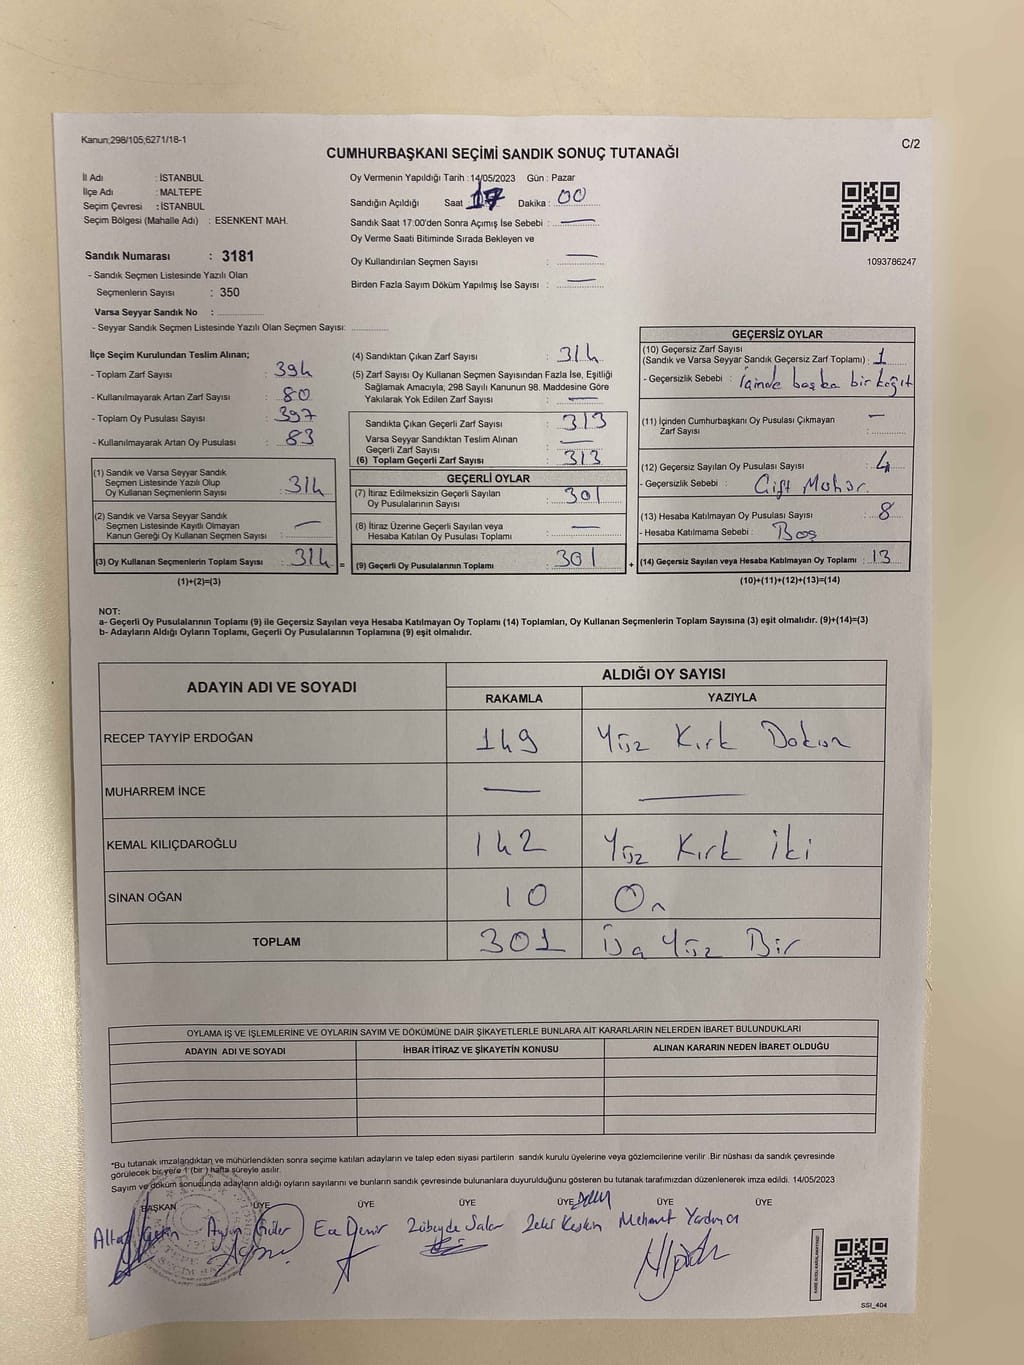 Kanun;298/105;6271/18-1
C/2
CUMHURBAŞKANI SEÇİMİ SANDIK SONUÇ TUTANAĞI
İl Adı : İSTANBUL
İlçe Adı : MALTEPE
Seçim Çevresi : İSTANBUL
Seçim Bölgesi (Mahalle Adı) : ESENKENT MAH.
Sandık Numarası : 3181
- Sandık Seçmen Listesinde Yazılı Olan
Seçmenlerin Sayısı : 350
Varsa Seyyar Sandık No :
- Seyyar Sandık Seçmen Listesinde Yazılı Olan Seçmen Sayısı:
Oy Vermenin Yapıldığı Tarih : 14/05/2023 Gün : Pazar
Sandığın Açıldığı Saat 17 Dakika : 00
Sandık Saat 17:00'den Sonra Açımış İse Sebebi : —
Oy Verme Saati Bitiminde Sırada Bekleyen ve
Oy Kullandırılan Seçmen Sayısı : —
Birden Fazla Sayım Döküm Yapılmış İse Sayısı : —
1093786247
İlçe Seçim Kurulundan Teslim Alınan;
- Toplam Zarf Sayısı : 394
- Kullanılmayarak Artan Zarf Sayısı : 80
- Toplam Oy Pusulası Sayısı : 397
- Kullanılmayarak Artan Oy Pusulası : 83
(1) Sandık ve Varsa Seyyar Sandık
Seçmen Listesinde Yazılı Olup
Oy Kullanan Seçmenlerin Sayısı : 314
(2) Sandık ve Varsa Seyyar Sandık
Seçmen Listesinde Kayıtlı Olmayan
Kanun Gereği Oy Kullanan Seçmen Sayısı : —
(3) Oy Kullanan Seçmenlerin Toplam Sayısı : 314 =
(1)+(2)=(3)
(4) Sandıktan Çıkan Zarf Sayısı : 314
(5) Zarf Sayısı Oy Kullanan Seçmen Sayısından Fazla İse, Eşitliği
Sağlamak Amacıyla; 298 Sayılı Kanunun 98. Maddesine Göre
Yakılarak Yok Edilen Zarf Sayısı : —
Sandıkta Çıkan Geçerli Zarf Sayısı : 313
Varsa Seyyar Sandıktan Teslim Alınan
Geçerli Zarf Sayısı : —
(6) Toplam Geçerli Zarf Sayısı : 313
GEÇERLİ OYLAR
(7) İtiraz Edilmeksizin Geçerli Sayılan
Oy Pusulalarının Sayısı : 301
(8) İtiraz Üzerine Geçerli Sayılan veya
Hesaba Katılan Oy Pusulası Toplamı : —
(9) Geçerli Oy Pusulalarının Toplamı : 301 +
GEÇERSİZ OYLAR
(10) Geçersiz Zarf Sayısı
(Sandık ve Varsa Seyyar Sandık Geçersiz Zarf Toplamı) : 1
- Geçersizlik Sebebi : içinde başka bir kağıt
(11) İçinden Cumhurbaşkanı Oy Pusulası Çıkmayan
Zarf Sayısı : —
(12) Geçersiz Sayılan Oy Pusulası Sayısı : 4
- Geçersizlik Sebebi : Çift Mühür.
(13) Hesaba Katılmayan Oy Pusulası Sayısı : 8
- Hesaba Katılmama Sebebi : Boş
(14) Geçersiz Sayılan veya Hesaba Katılmayan Oy Toplamı : 13
(10)+(11)+(12)+(13)=(14)
NOT:
a- Geçerli Oy Pusulalarının Toplamı (9) ile Geçersiz Sayılan veya Hesaba Katılmayan Oy Toplamı (14) Toplamları, Oy Kullanan Seçmenlerin Toplam Sayısına (3) eşit olmalıdır. (9)+(14)=(3)
b- Adayların Aldığı Oyların Toplamı, Geçerli Oy Pusulalarının Toplamına (9) eşit olmalıdır.
ADAYIN ADI VE SOYADI
ALDIĞI OY SAYISI
RAKAMLA YAZIYLA
RECEP TAYYİP ERDOĞAN 149 Yüz Kırk Dokuz
MUHARREM İNCE — —
KEMAL KILIÇDAROĞLU 142 Yüz Kırk İki
SİNAN OĞAN 10 On
TOPLAM 301 Üç Yüz Bir
OYLAMA İŞ VE İŞLEMLERİNE VE OYLARIN SAYIM VE DÖKÜMÜNE DAİR ŞİKAYETLERLE BUNLARA AİT KARARLARIN NELERDEN İBARET BULUNDUKLARI
ADAYIN ADI VE SOYADI İHBAR İTİRAZ VE ŞİKAYETİN KONUSU ALINAN KARARIN NEDEN İBARET OLDUĞU
*Bu tutanak imzalandıktan ve mühürlendikten sonra seçime katılan adayların ve talep eden siyasi partilerin sandık kurulu üyelerine veya gözlemcilerine verilir .Bir nüshası da sandık çevresinde
görülecek bir yere 1 (bir ) hafta süreyle asılır.
Sayım ve döküm sonucunda adayların aldığı oyların sayılarını ve bunların sandık çevresinde bulunanlara duyurulduğunu gösteren bu tutanak tarafımızdan düzenlenerek imza edildi. 14/05/2023
BAŞKAN ÜYE ÜYE ÜYE ÜYE ÜYE ÜYE
Aysın Güler Ece Demir Zübeyde Salar Zeki Keskin Mehmet Yardımcı
SSI_404